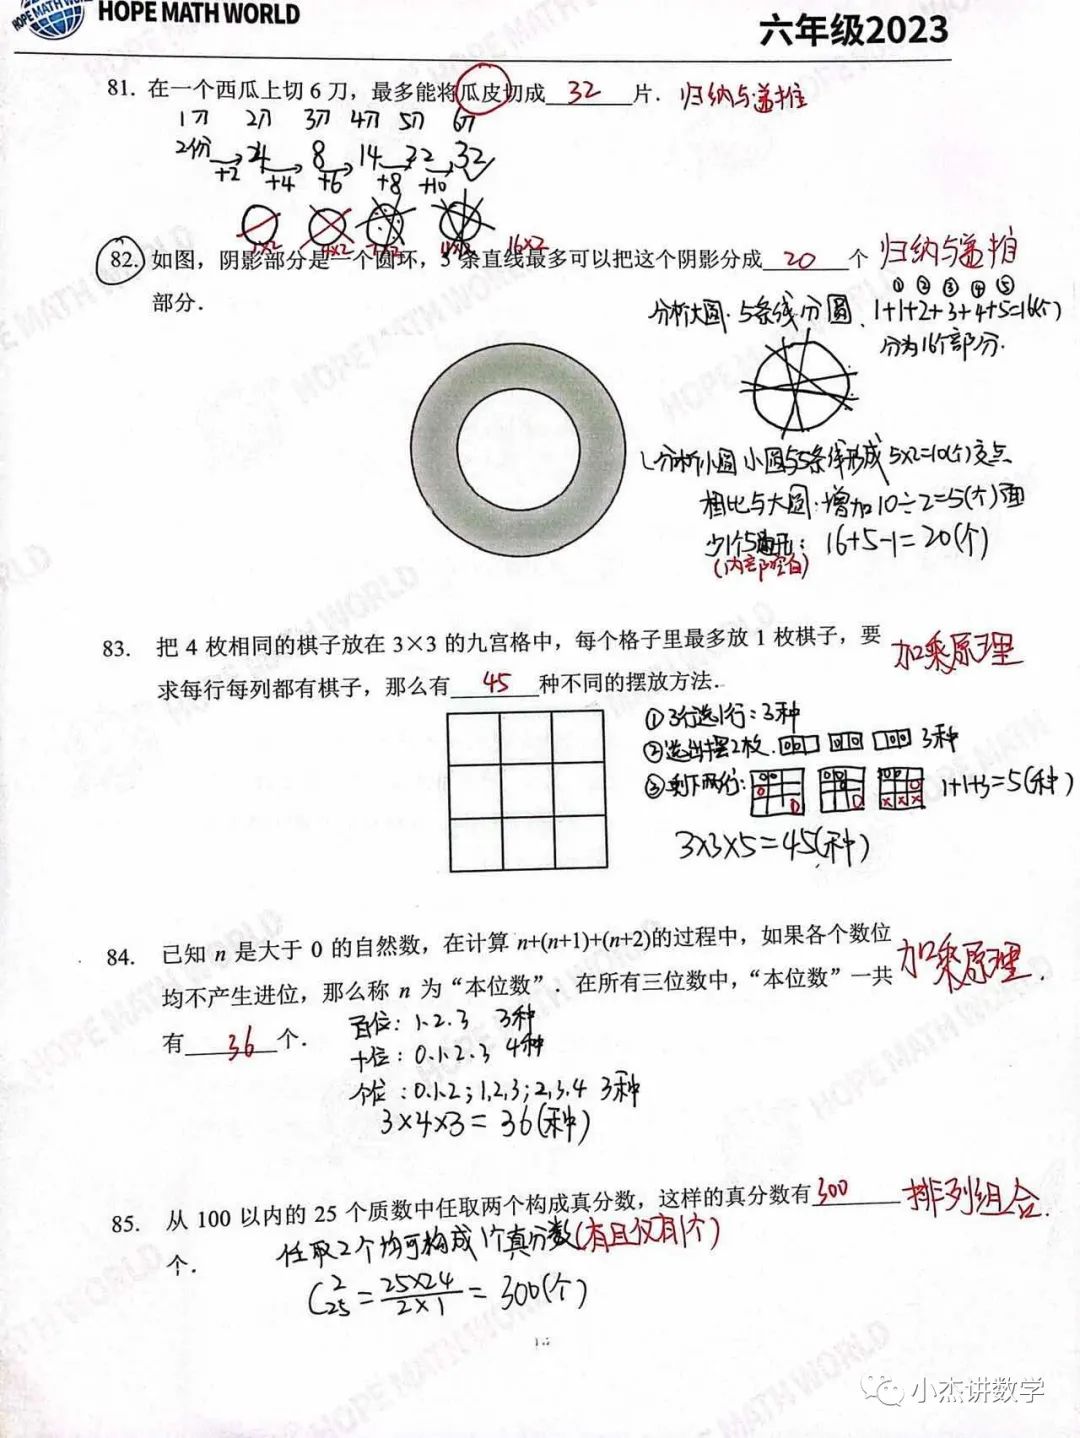 HOPE MATH WORLD
HOPE MATH WORLD
六年级2023
81. 在一个西瓜上切 6 刀，最多能将瓜皮切成 32 片. 归纳与递推
1刀 2刀 3刀 4刀 5刀 6刀
2份 4 8 14 22 32
+2 +4 +6 +8 +10
1×2 4×2 7×2 11×2 16×2
82. 如图，阴影部分是一个圆环，5 条直线最多可以把这个阴影分成 20 个 归纳与递推
部分.
① ② ③ ④ ⑤
分析大圆: 5条线分圆. 1+1+2+3+4+5=16(个)
分为16个部分.
分析小圆 小圆与5条线形成 5×2=10(个)交点
相比与大圆: 增加10÷2=5(个)面
少1个: 16+5-1=20(个)
(内部空白)
83. 把 4 枚相同的棋子放在 3×3 的九宫格中，每个格子里最多放 1 枚棋子，要 加乘原理
求每行每列都有棋子，那么有 45 种不同的摆放方法.
①3行选1行: 3种
②选出摆2枚. 3种
③剩下两行: 1+1+3=5(种)
3×3×5=45(种)
84. 已知 n 是大于 0 的自然数，在计算 n+(n+1)+(n+2)的过程中，如果各个数位 加乘原理.
均不产生进位，那么称 n 为“本位数”. 在所有三位数中，“本位数”一共
有 36 个.
百位: 1.2.3 3种
十位: 0.1.2.3 4种
个位: 0.1.2; 1,2,3; 2,3.4 3种
3×4×3=36(种)
85. 从 100 以内的 25 个质数中任取两个构成真分数，这样的真分数有 300 排列组合.
个.
任取2个均可构成1个真分数(有且仅有1个)
C²₂₅ = 25×24 / 2×1 = 300(个)
小杰讲数学